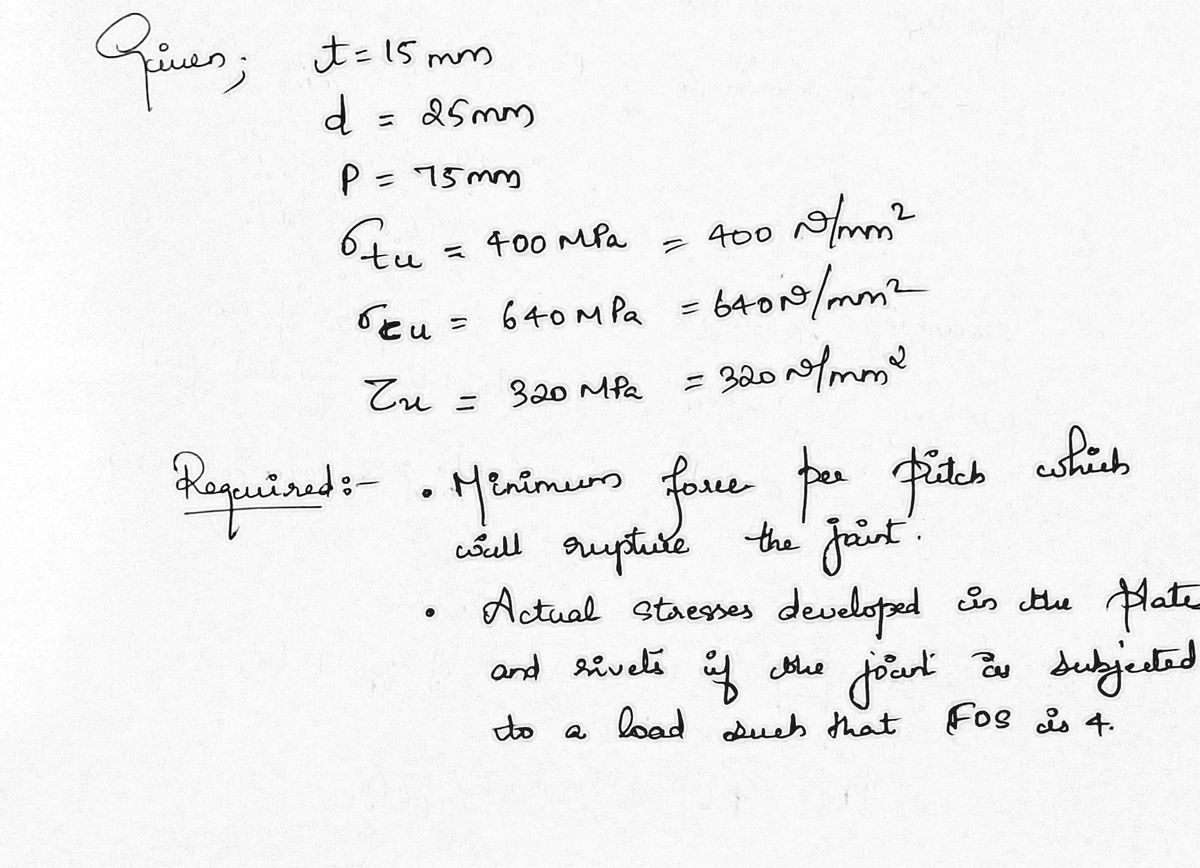 Given; t = 15 mm
d = 25mm
P = 75mm
σtu = 400 MPa = 400 N/mm²
σcu = 640 MPa = 640 N/mm²
τu = 320 MPa = 320 N/mm²
Required:- • Minimum force per pitch which
will rupture the joint.
• Actual stresses developed in the plate
and rivets if the joint is subjected
to a load such that FOS is 4.